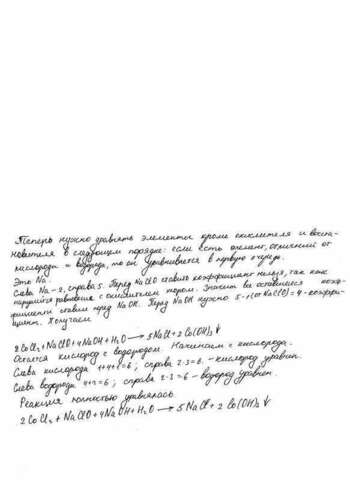 Теперь нужно уравнять элементы кроме окислителя и восста-
новителя в следующем порядке: если есть элемент, отличный от
кислорода и водорода, то он уравнивается в первую очередь.
Это Na.
Слева Na-2, справа 5. Перед NaClO ставить коэффициент нельзя, так как
нарушится равновесие с окислителем хлором. Значит все оставшиеся коэф-
фициенты ставим перед NaOH. Перед NaOH нужно 5-1(от NaClO)=4-коэффи-
циент. Получаем
2CoCl₂+NaClO+4NaOH+H₂O → 5NaCl+2Co(OH)₃↓
Остался кислород с водородом. Начинаем с кислорода.
Слева кислорода 1+4+1=6; справа 2·3=6. - кислород уравнен.
Слева водорода 4+2=6; справа 2·3=6 - водород уравнен.
Реакция полностью уравнялась
2CoCl₂+NaClO+4NaOH+H₂O → 5NaCl+2Co(OH)₃↓